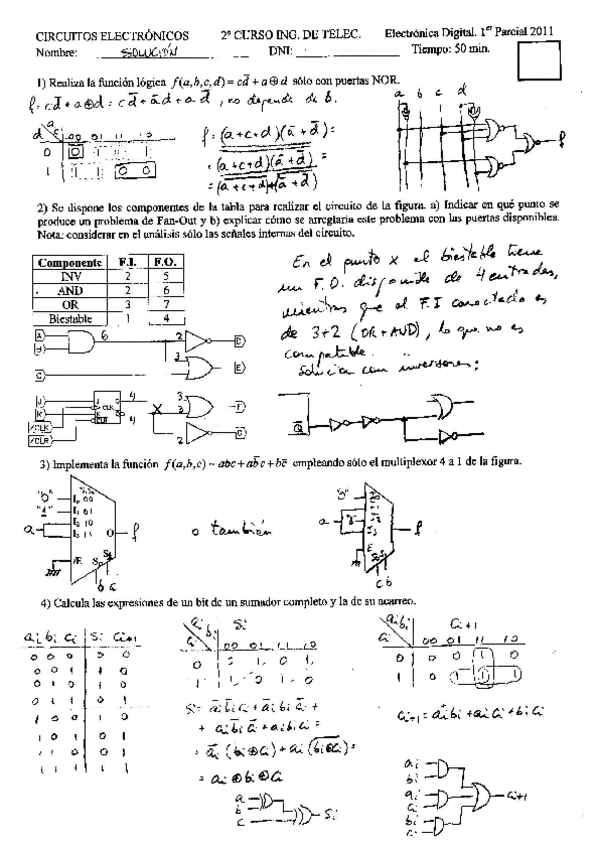 CIRCUITOS ELECTRÓNICOS 2º CURSO ING. DE TELEC. Electrónica Digital. 1er Parcial 2011
Nombre: SOLUCIÓN DNI: Tiempo: 50 min.
1) Realiza la función lógica f(a,b,c,d) = cd̅ + a⊕d sólo con puertas NOR.
f = cd̅ + a⊕d = cd̅ + a̅d + ad̅, no depende de b.
a b c d
d ac 00 01 11 10
0 0 1 1 1
1 1 1 0 0
f = (a+c+d)(a̅+d̅) =
= (a+c+d)(a̅+d̅) =
= (a+c+d)+(a̅+d̅)
f
2) Se dispone los componentes de la tabla para realizar el circuito de la figura. a) Indicar en qué punto se
produce un problema de Fan-Out y b) explicar cómo se arreglaría este problema con las puertas disponibles.
Nota: considerar en el análisis sólo las señales internas del circuito.
Componente F.I. F.O.
INV 2 5
AND 2 6
OR 3 7
Biestable 1 4
En el punto X el biestable tiene
un F.O. disponible de 4 entradas,
mientras que el F.I conectado es
de 3+2 (OR+AND), lo que no es
compatible.
Solución con inversores:
A 6 2 D
3 E
C
J 4 3 F
K CLK X 3
/CLK CLR 4
/CLR 2 G
Q̅
3) Implementa la función f(a,b,c) = abc + ab̅c + bc̅ empleando sólo el multiplexor 4 a 1 de la figura.
"0" I0 00
"1" I1 01
a I2 10
I3 11 O f
/E S0 S1
b c
o también
"0"
a
f
E S0 S1
c b
4) Calcula las expresiones de un bit de un sumador completo y la de su acarreo.
ai bi ci Si Ci+1
0 0 0 0 0
0 0 1 1 0
0 1 0 1 0
0 1 1 0 1
1 0 0 1 0
1 0 1 0 1
1 1 0 0 1
1 1 1 1 1
ai bi Si
ci 00 01 11 10
0 0 1 0 1
1 1 0 1 0
S = a̅ib̅ici + a̅ibic̅i +
+ aib̅ic̅i + aibici =
= a̅i (bi⊕ci) + ai(bi⊕ci) =
= ai⊕bi⊕ci
a
b
c Si
aibi Ci+1
ci 00 01 11 10
0 0 0 1 0
1 0 1 1 1
ci+1 = aibi + aici + bici
ai
bi
ai
ci ci+1
bi
ci